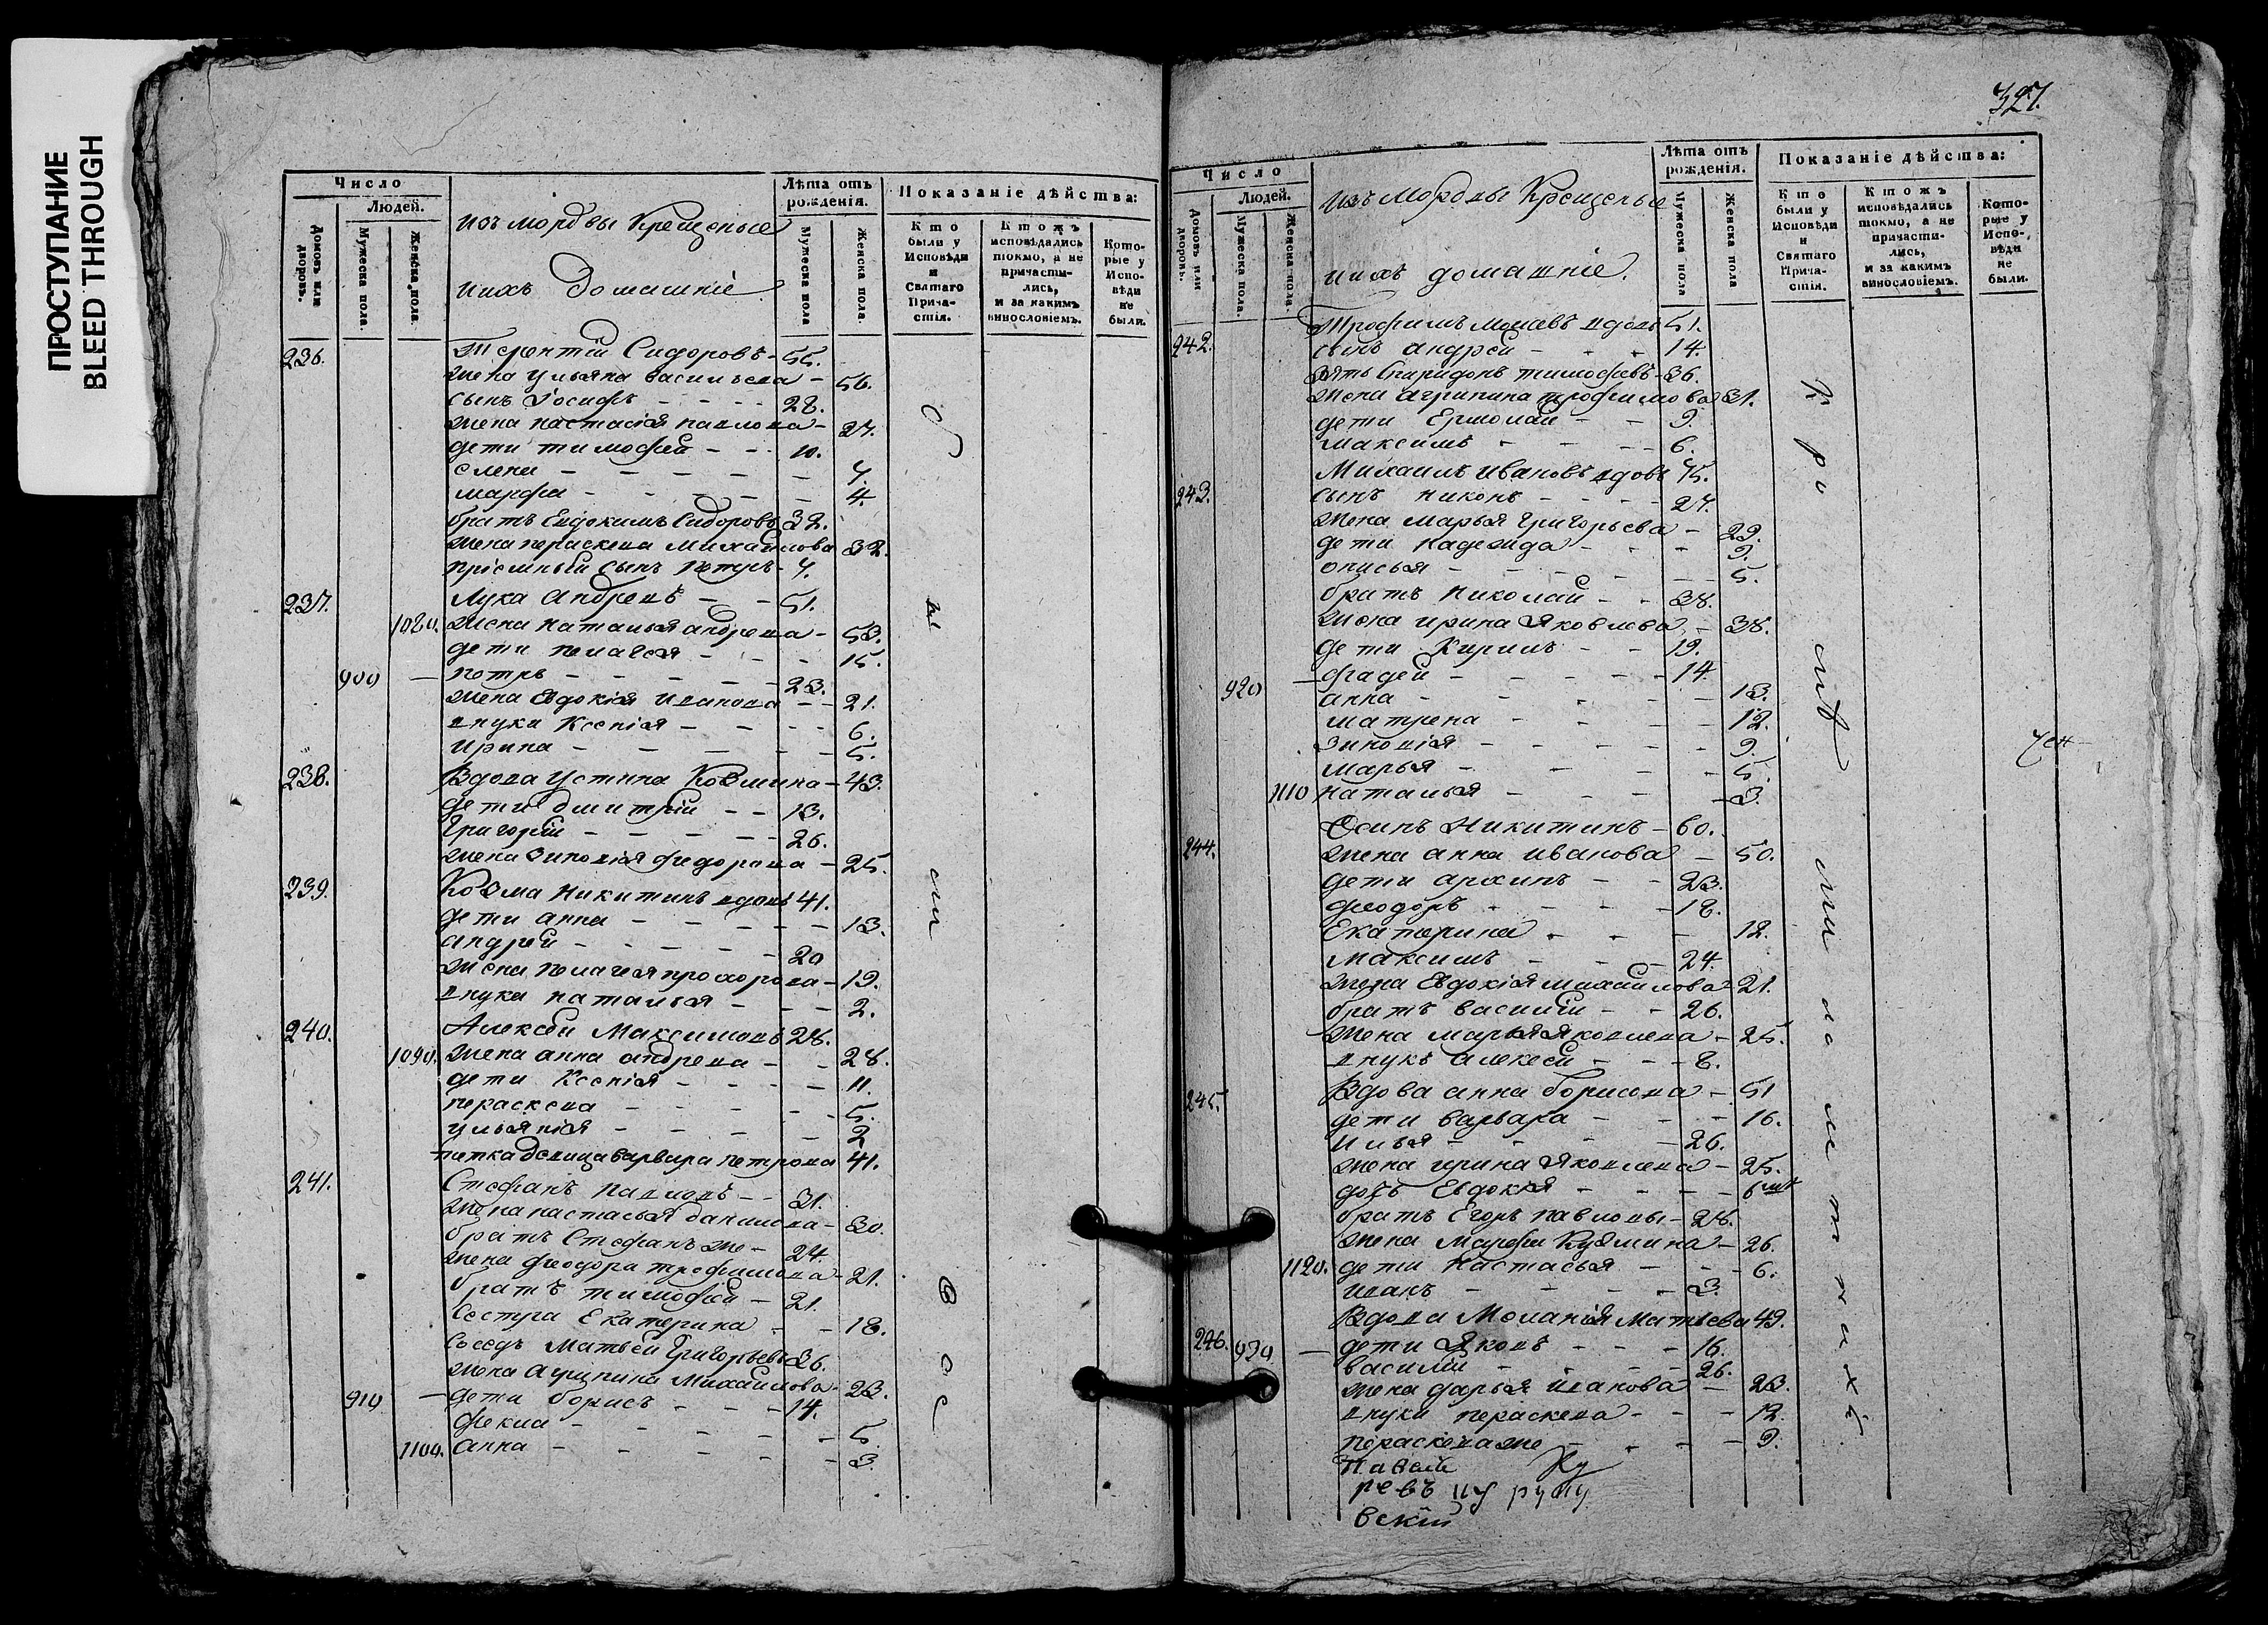 ПРОСТУПАНИЕ
BLEED THROUGH
Число
Людей.
Домовъ или дворовъ.
Мужеска пола.
Женска пола.
Изъ мордвы Крещеные
и ихъ Домашніе
Лѣта отъ рожденія.
Мужеска пола
Женска пола.
Показаніе дѣйства:
Кто были у Исповѣди и Святаго Причастія.
Ктожъ исповѣдались токмо, а не причастились, и за какимъ винословіемъ.
Которые у Исповѣди не были.
236. Терентій Сидоровъ - 55.
жена Ульяна васильева - 56.
сынъ Іосифъ - - - - 28.
жена настасія павлова - 27.
дети тимофей - - 10.
елена - - - - - 7.
марфа - - - - - 4.
братъ Евдокимъ Сидоровъ 32.
жена пераскева Михайлова 32.
пріемный сынъ петръ - 7.
237. Лука Андреевъ - - 51.
1080. жена наталья андреева - 53.
дети пелагея - - - 15.
900 — петръ - - - - - 23.
жена Евдокія Иванова - - 21.
внуки Ксенія - - - - 6.
Ирина - - - - - 5.
238. Вдова Устина Козмина - 43.
дети дмитрій - - 13.
Григорій - - - - - 26.
жена Зиновія федорова - 25.
239. Козма Никитинъ вдовъ 41.
дети анна - - - - - 13.
андрей - - - - - 20
жена пелагея прохорова - 19.
внука наталья - - - 2.
240. Алексей Максимовъ 28.
1090. жена анна андреева - - 28.
дети Ксенія - - - - 11.
пераскева - - - - - 5.
ульянія - - - - - 2
тетка девица варвара петрова 41.
241. Стефанъ Павловъ - - 31.
жена настасья данилова - 30.
братъ Стефанъ же - 24.
жена феодора трофимова - 21.
братъ тимофей - 21.
Сестра Екатерина - - 18.
Соседъ Матвей Григорьевъ 36.
жена Агрипина Михайлова - 23.
910 — дети борисъ - - - 14.
фекла - - - - - 5.
1100. анна - - - - - 3.
327.
Число
Людей.
Домовъ или дворовъ.
Мужеска пола.
Женска пола
Изъ Мордвы Крещеные
и ихъ домашніе.
Лѣта отъ рожденія.
Мужеска пола
Женска пола
Показаніе дѣйства:
Кто были у Исповѣди и Святаго Причастія.
Ктожъ исповѣдались токмо, а не причастились, и за какимъ винословіемъ.
Которые у Исповѣди не были.
242. Трофимъ вдовъ 51.
сынъ андрей - - - 14.
зять Спиридонъ тимофевъ - 36.
жена Агрипина трофимова 31.
дети Ермолай - - 9.
Максимъ - - - - 6.
243. Михаилъ Ивановъ вдовъ 75.
сынъ никонъ - - - - 27.
жена марья Григорьева - 29.
дети надежда - - - 9.
- - - - - 5.
братъ Николай - - 38.
жена ирина Яковлева - 38.
дети Кирилъ - - 19.
920 — фадей - - - - - 14
анна - - - - - 13.
матрена - - - - 12.
Зиновія - - - - - 9.
марья - - - - 5.
1110 наталья - - - - 3.
244. Осипъ Никитинъ - 60.
жена анна иванова - 50.
дети архипъ - - 23.
феодоръ - - - - 18.
Екатерина - - - 12.
Максимъ - - - 24.
жена Евдокія михайлова - 21.
братъ василій - - 26.
жена марья Яковлева - 25.
внукъ алексей - - - 8.
245. Вдова анна борисова - 51
дети варвара - - - 16.
Илья - - - 26.
жена ирина Яковлева - 25.
дочь Евдокія - - - - 6
братъ Егоръ павловъ - 28.
жена Марфа Кузмина - 26.
1120. дети Настасья - - - 6.
иванъ - - - - 3.
246. Вдова Меланія Матвеева 49.
930 — дети Яковъ - - - 16.
василій - - - - - 26.
жена дарья иванова - 23.
внуки пераскева - - - 12.
пераскева же - - - - 9.